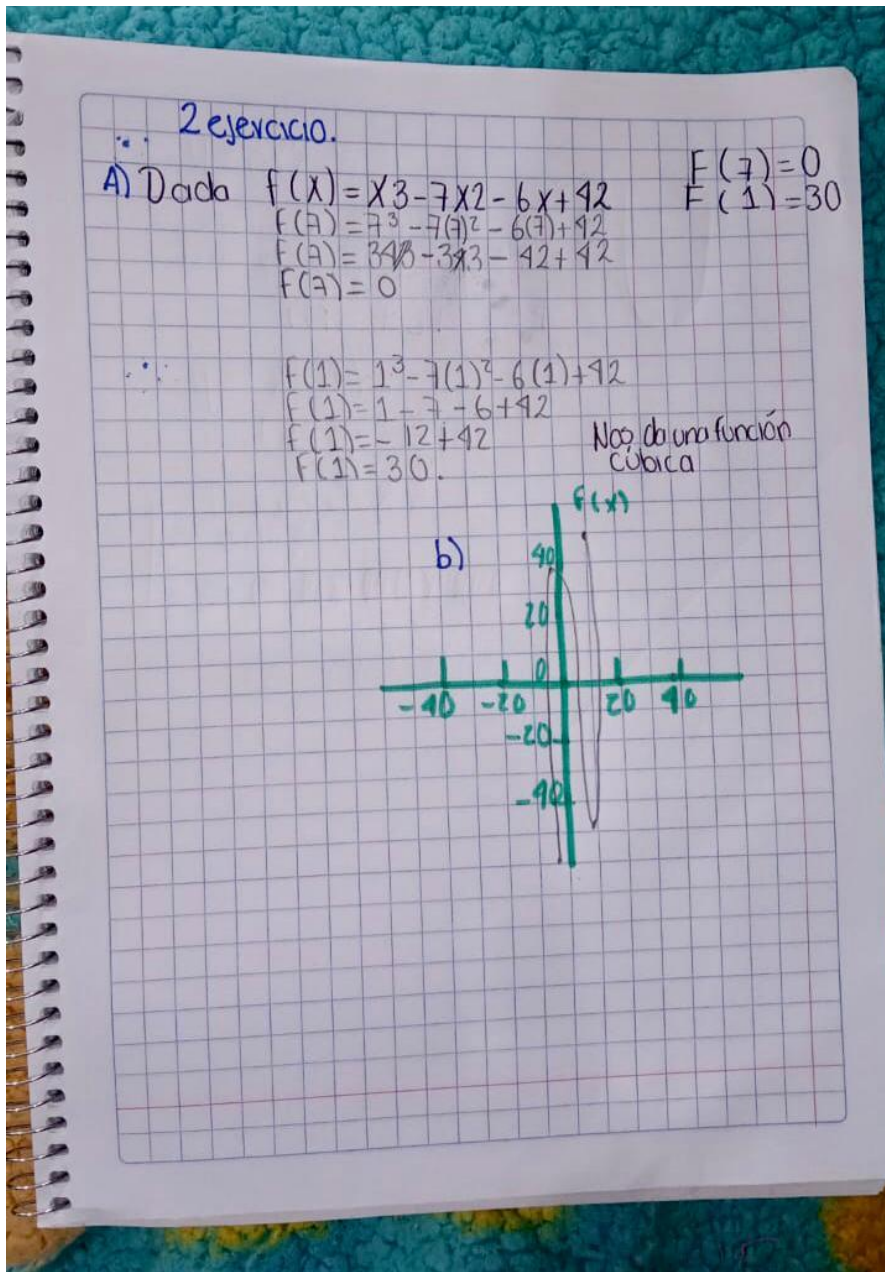 2 ejercicio.
A) Dada f(x) = x3-7x2-6x+42
F(7)=0
F(1)=30
F(7) = 7³-7(7)²-6(7)+42
F(7) = 343-343-42+42
F(7) = 0
f(1) = 1³-7(1)²-6(1)+42
f(1) = 1-7-6+42
f(1) = -12+42
F(1) = 30.
Nos da una función
cúbica
f(x)
b)
40
20
0
-40 -20 20 40
-20
-40